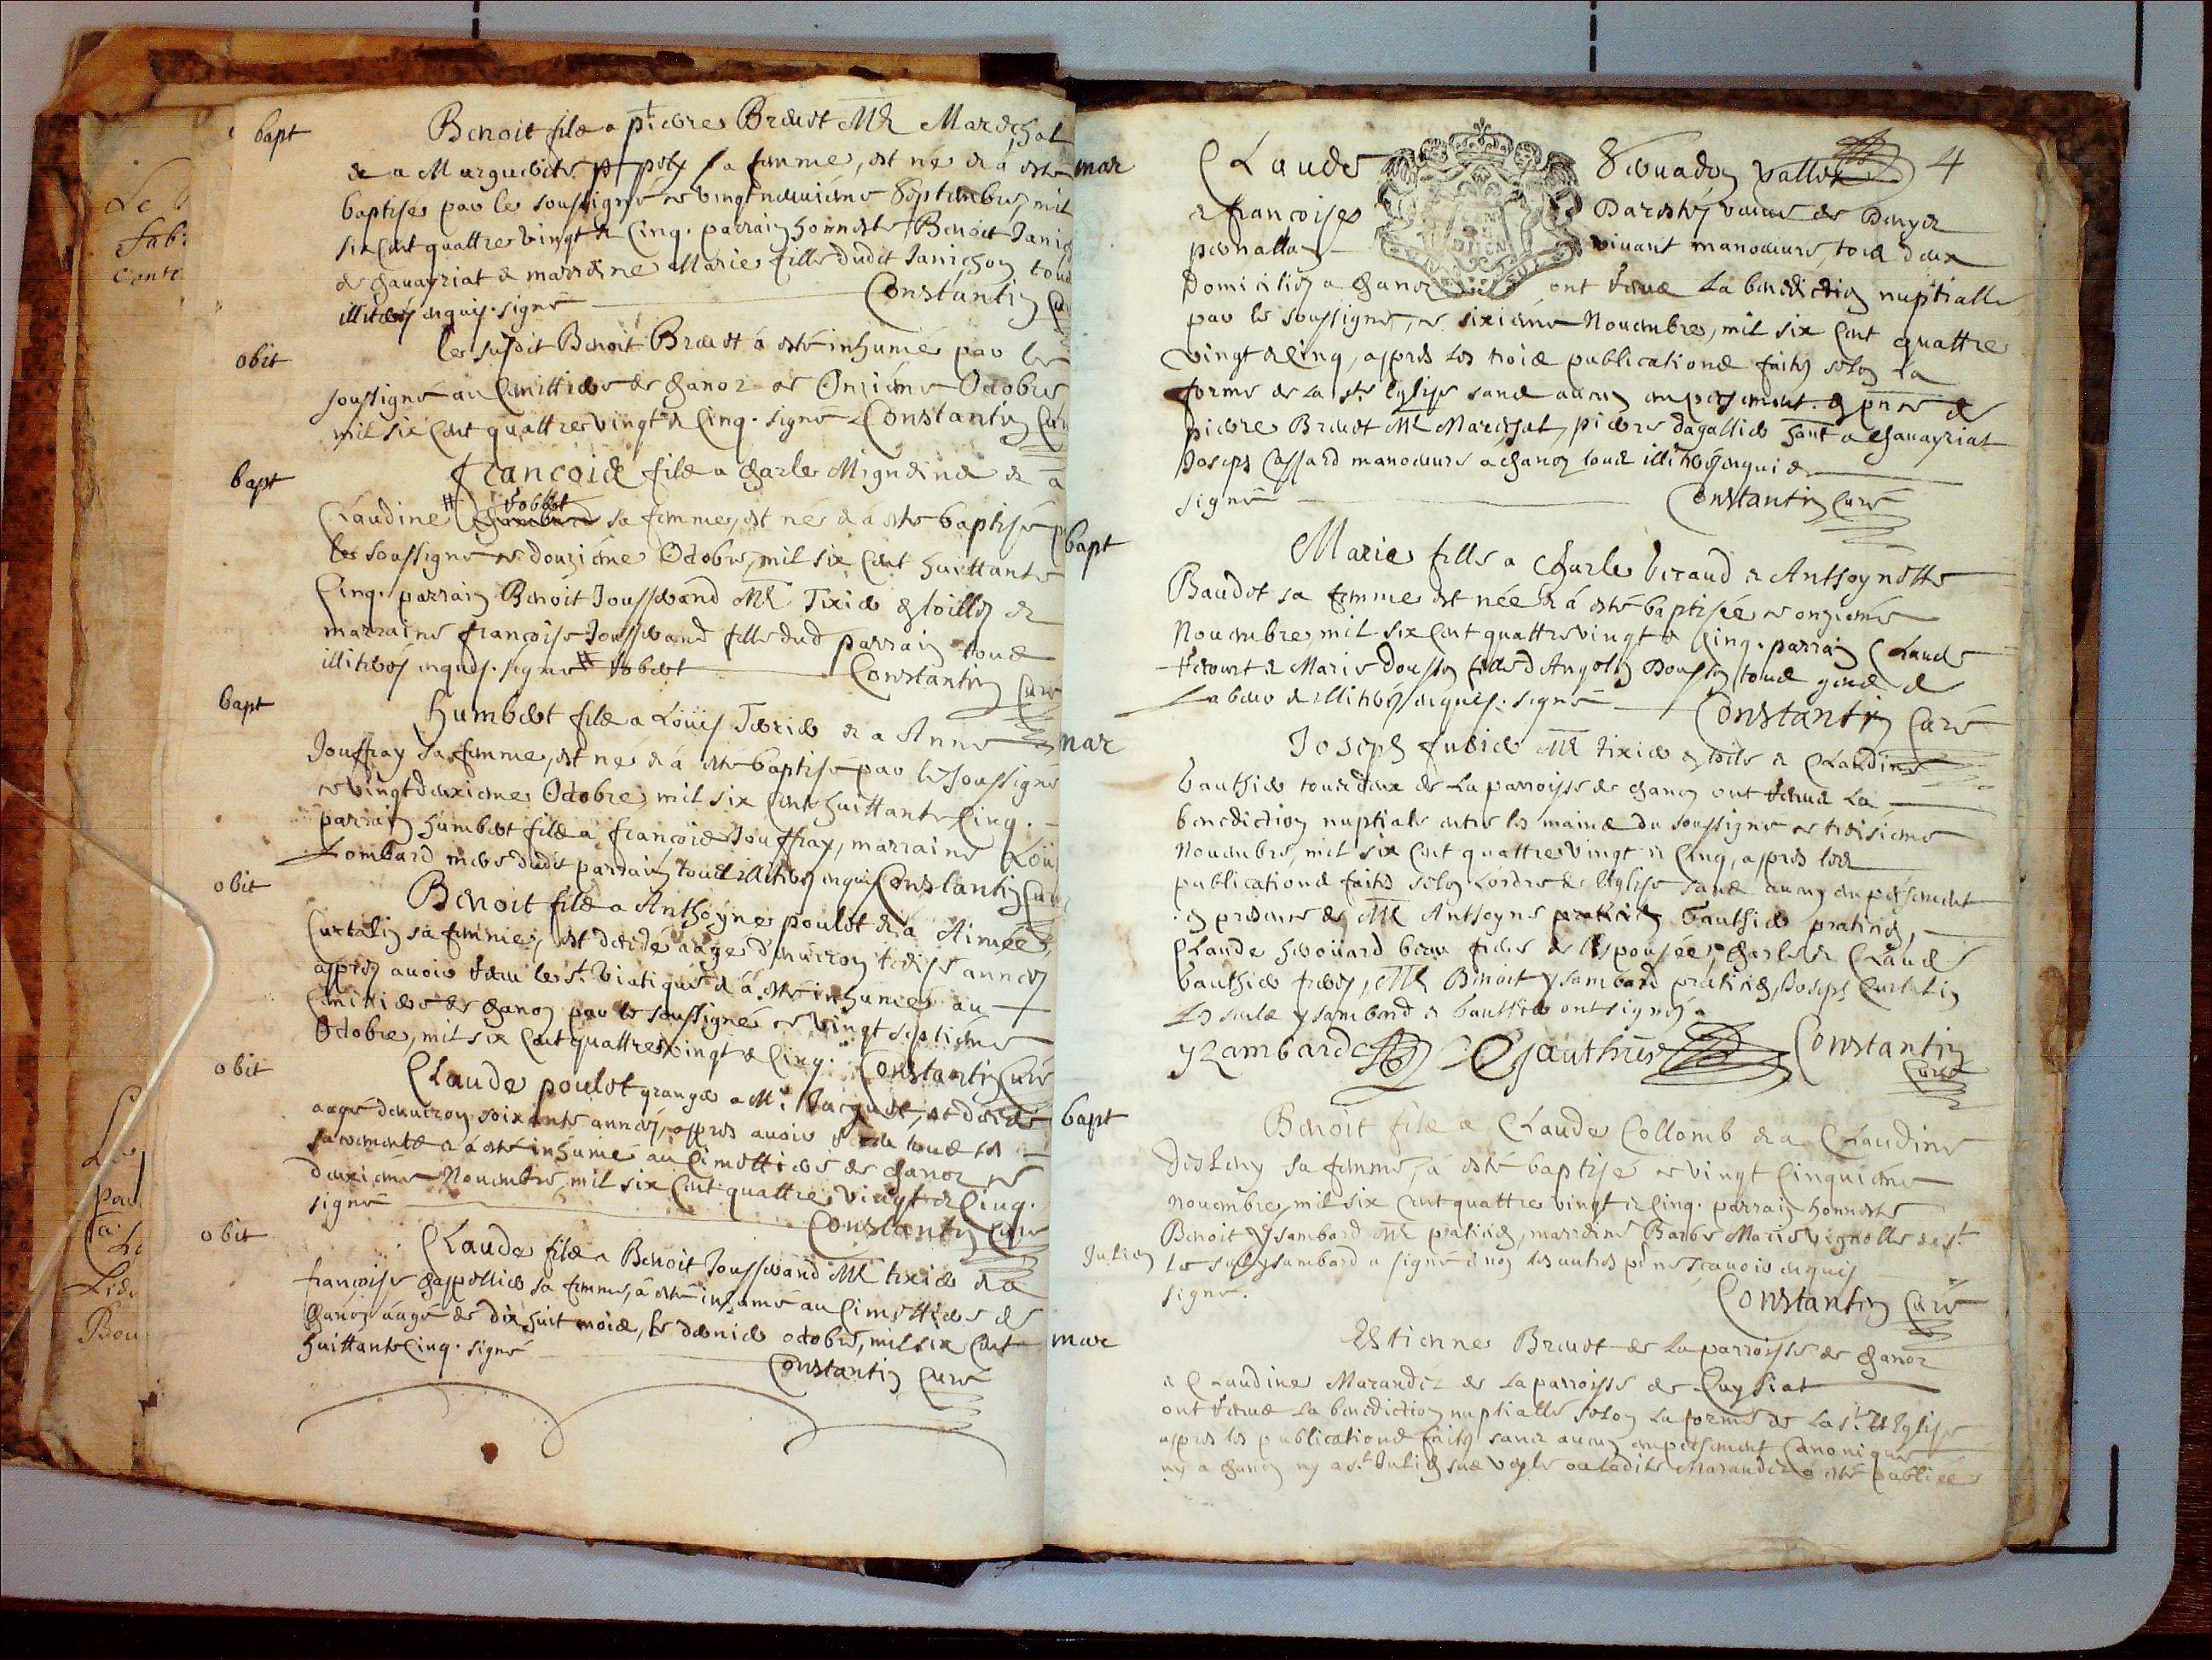 bapt
Benoit fils a pierre Breuet Mre Mareschal
& a Marguerite sa femme, est né & a esté
baptisé par le soussigné ce vingt neuuieme Septembre, mil
six cent quattre vingt & cinq. parrain honneste Benoit Janic
de chauayriat & marreine Marie fille dudit Janichon tous
illiterés enquis. signé Constantin Cu
obit
le susdit Benoit Breuet a esté inhumé par le
soussigné au Cimittiere de chanoz ce Onzieme Octobre
mil six cent quattre vingt & Cinq. signé Constantin Cu
bapt
francois fils a Charle & a
Claudine # sa femme, est né & a esté baptisé p
le soussigné ce douzieme Octobre, mil six cent huittante
Cinq. parrain Benoit Jousserand Mre Tixier &
marraine françoise Jousserand fille dud parrain tous
illiterés enquis. signé # Constantin Curé
bapt
humbert fils a Loüis Terrier & a Anne
Jouffray sa femme, est né & a esté baptisé par le soussigné
ce vingt deuxieme Octobre, mil six cent huittante Cinq.
parrain humbert fils a francois Jouffray, marraine Loü
Lombard mere dudit parrain tous illiterés enquis Constantin Cu
obit
Benoit fils a Anthoyne poulet & a Aimée
Curtalin sa femme, est decedé aagé d'enuiron treise années
apres auoir receu le st. Viatique & a esté inhumé au
Cimitiere de chanoz par le soussigné ce vingt septieme
Octobre, mil six cent quattre vingt & Cinq. Constantin Curé
obit
Claude poulet granger a Mr. Jacquet, est decedé
aagé d'enuiron soixante années, apres auoir receu tous les
sacrements & a esté inhumé au Cimettiere de chanoz ce
deuxieme Nouembre, mil six cent quattre vingt & Cinq.
signé Constantin Curé
obit
Claude fils a Benoit Jousserand Mre tixier & a
françoise chappellier sa femme, a esté inhumé au Cimettiere de
chanoz aagé de dix huit mois, le dernier octobre, mil six cent
huittante Cinq. signé Constantin Curé
4
mar
Claude
& françoise veuue de Denys
viuant manoeuure, tous deux
Domiciliés a chanoz ont receus la benediction nuptialle
par le soussigné, ce sixieme Nouembre, mil six cent quattre
vingt & cinq, appres les trois publications faites selon la
forme de la ste. Eglise sans aucun empeschement. En pnce de
pierre Breuet Mre Mareschal, pierre dagallier a chauayriat
Joseph Cassard manoeuure a chanoz tous illiterés enquis
signé Constantin Curé
bapt
Marie fille a Charle beraud & Anthoynette
Baudet sa femme est née & a esté baptisée ce onzieme
Nouembre mil six cent quattre vingt & Cinq. parrain Claude
& Marie Dousson fille d'Dousson tous gens de
Labeur & illiterés enquis. signé Constantin Curé
mar
Joseph Mre tixier en toile & Claudine
Gauthier tous deux de La parroisse de chanoz ont receus La
benediction nuptiale entre les mains du soussigné ce treisieme
Nouembre, mil six cent quattre vingt & Cinq, appres les
publications faites selon Lordre de l'Eglise sans aucun empeschement
En presence de Mre Anthoyne Gauthier praticien,
Claude beau frere de l'espousée, Charle & Claude
Gauthier freres, Mre Benoit ysambard praticien, Joseph Curtalin
Les seuls ysambard & Gauthier ont signés
yzambard Gauthier Constantin
Curé
bapt
Benoit fils a Claude Collomb & a Claudine
sa femme, a esté baptisé ce vingt Cinquieme
nouembre, mil six cent quattre vingt & Cinq. parrain honneste
Benoit ysambard Mre praticien, marreine Barbe Marie Vignolle de st
Julien le seul ysambard a signé & non les autres enquis
signé. Constantin Curé
mar
Estienne Breuet de La parroisse de chanoz
& Claudine Marandet de La parroisse de Cuysiat
ont receus La benediction nuptialle selon La forme de La ste. Eglise
appres les publications faites sans aucun empeschement Canonique
ny a chanoz ny a st. Julien ou Ladite Marandet a esté publiée